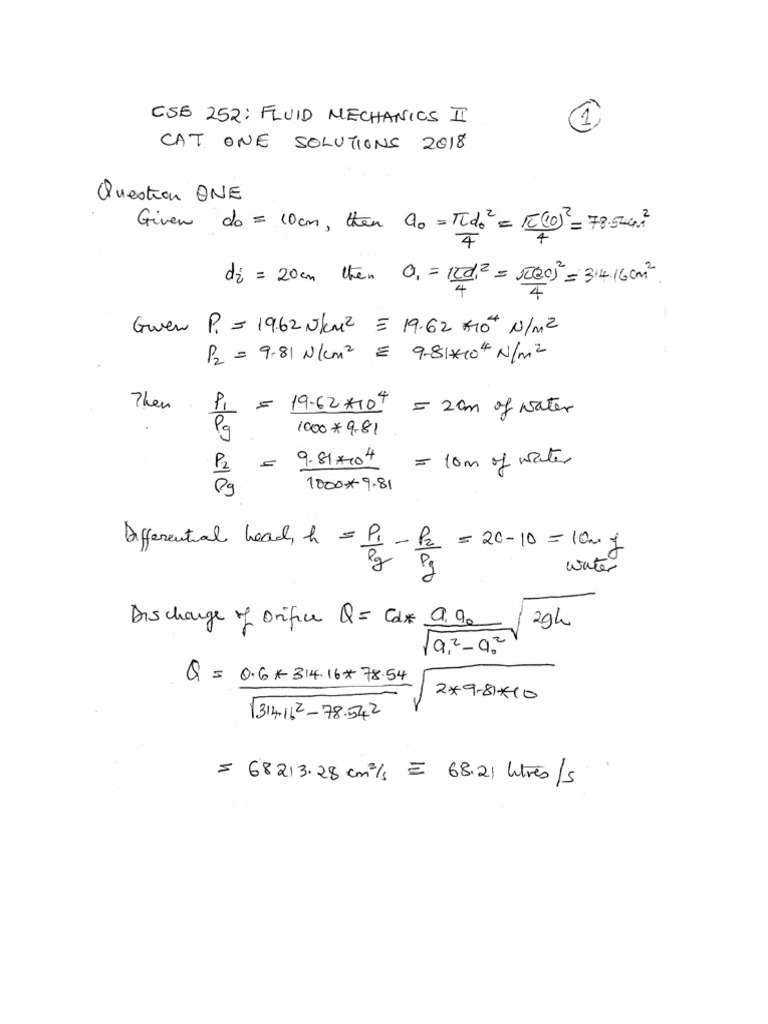 CSE 252: FLUID MECHANICS II
①
CAT ONE SOLUTIONS 2018
Question ONE
Given do = 10cm, then a₀ = πd₀²/4 = π(10)²/4 = 78.54cm²
di = 20cm then a₁ = πd₁²/4 = π(20)²/4 = 314.16cm²
Given P₁ = 19.62 N/cm² ≡ 19.62 *10⁴ N/m²
P₂ = 9.81 N/cm² ≡ 9.81*10⁴ N/m²
Then P₁/ρg = 19.62*10⁴/1000*9.81 = 20m of water
P₂/ρg = 9.81*10⁴/1000*9.81 = 10m of water
Differential head, h = P₁/ρg - P₂/ρg = 20-10 = 10m of
water
Discharge of Orifice Q = Cd* a₁a₀/√(a₁²-a₀²) √(2gh)
Q = 0.6*314.16*78.54/√(314.16²-78.54²) √(2*9.81*10)
= 68213.28 cm³/s ≡ 68.21 litres/s